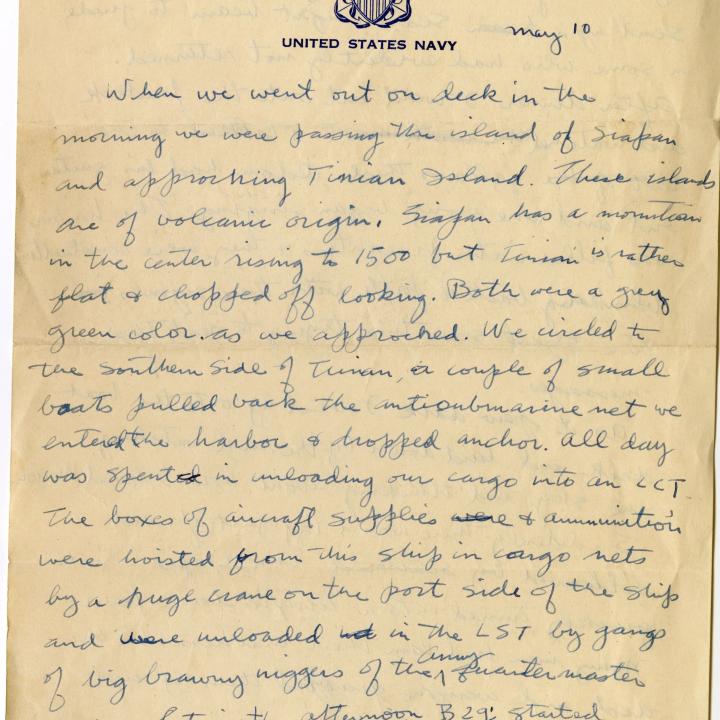 UNITED STATES NAVY
May 10
When we went out on deck in the
morning we were passing the island of Siapan
and approching Tinian Island. These islands
are of volcanic origin. Siapan has a mountian
in the center rising to 1500 but Tinian is rather
flat & chopped off looking. Both were a grey
green color. as we approched. We circled to
the southern side of Tinian, a couple of small
boats pulled back the antisubmarine net we
entered the harbor & dropped anchor. All day
was spent in unloading our cargo into an LCT
The boxes of aircraft supplies were & ammunition
were hoisted from this ship in cargo nets
by a huge crane on the port side of the ship
and were unloaded in the LST by gangs
of big brawny niggers of the Army Quartermaster
in the afternoon B29s started